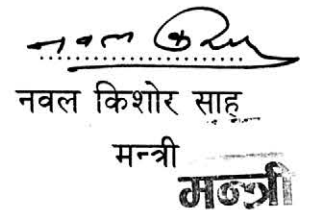 नवल कि
नवल किशोर साह
मन्त्री
मन्त्री